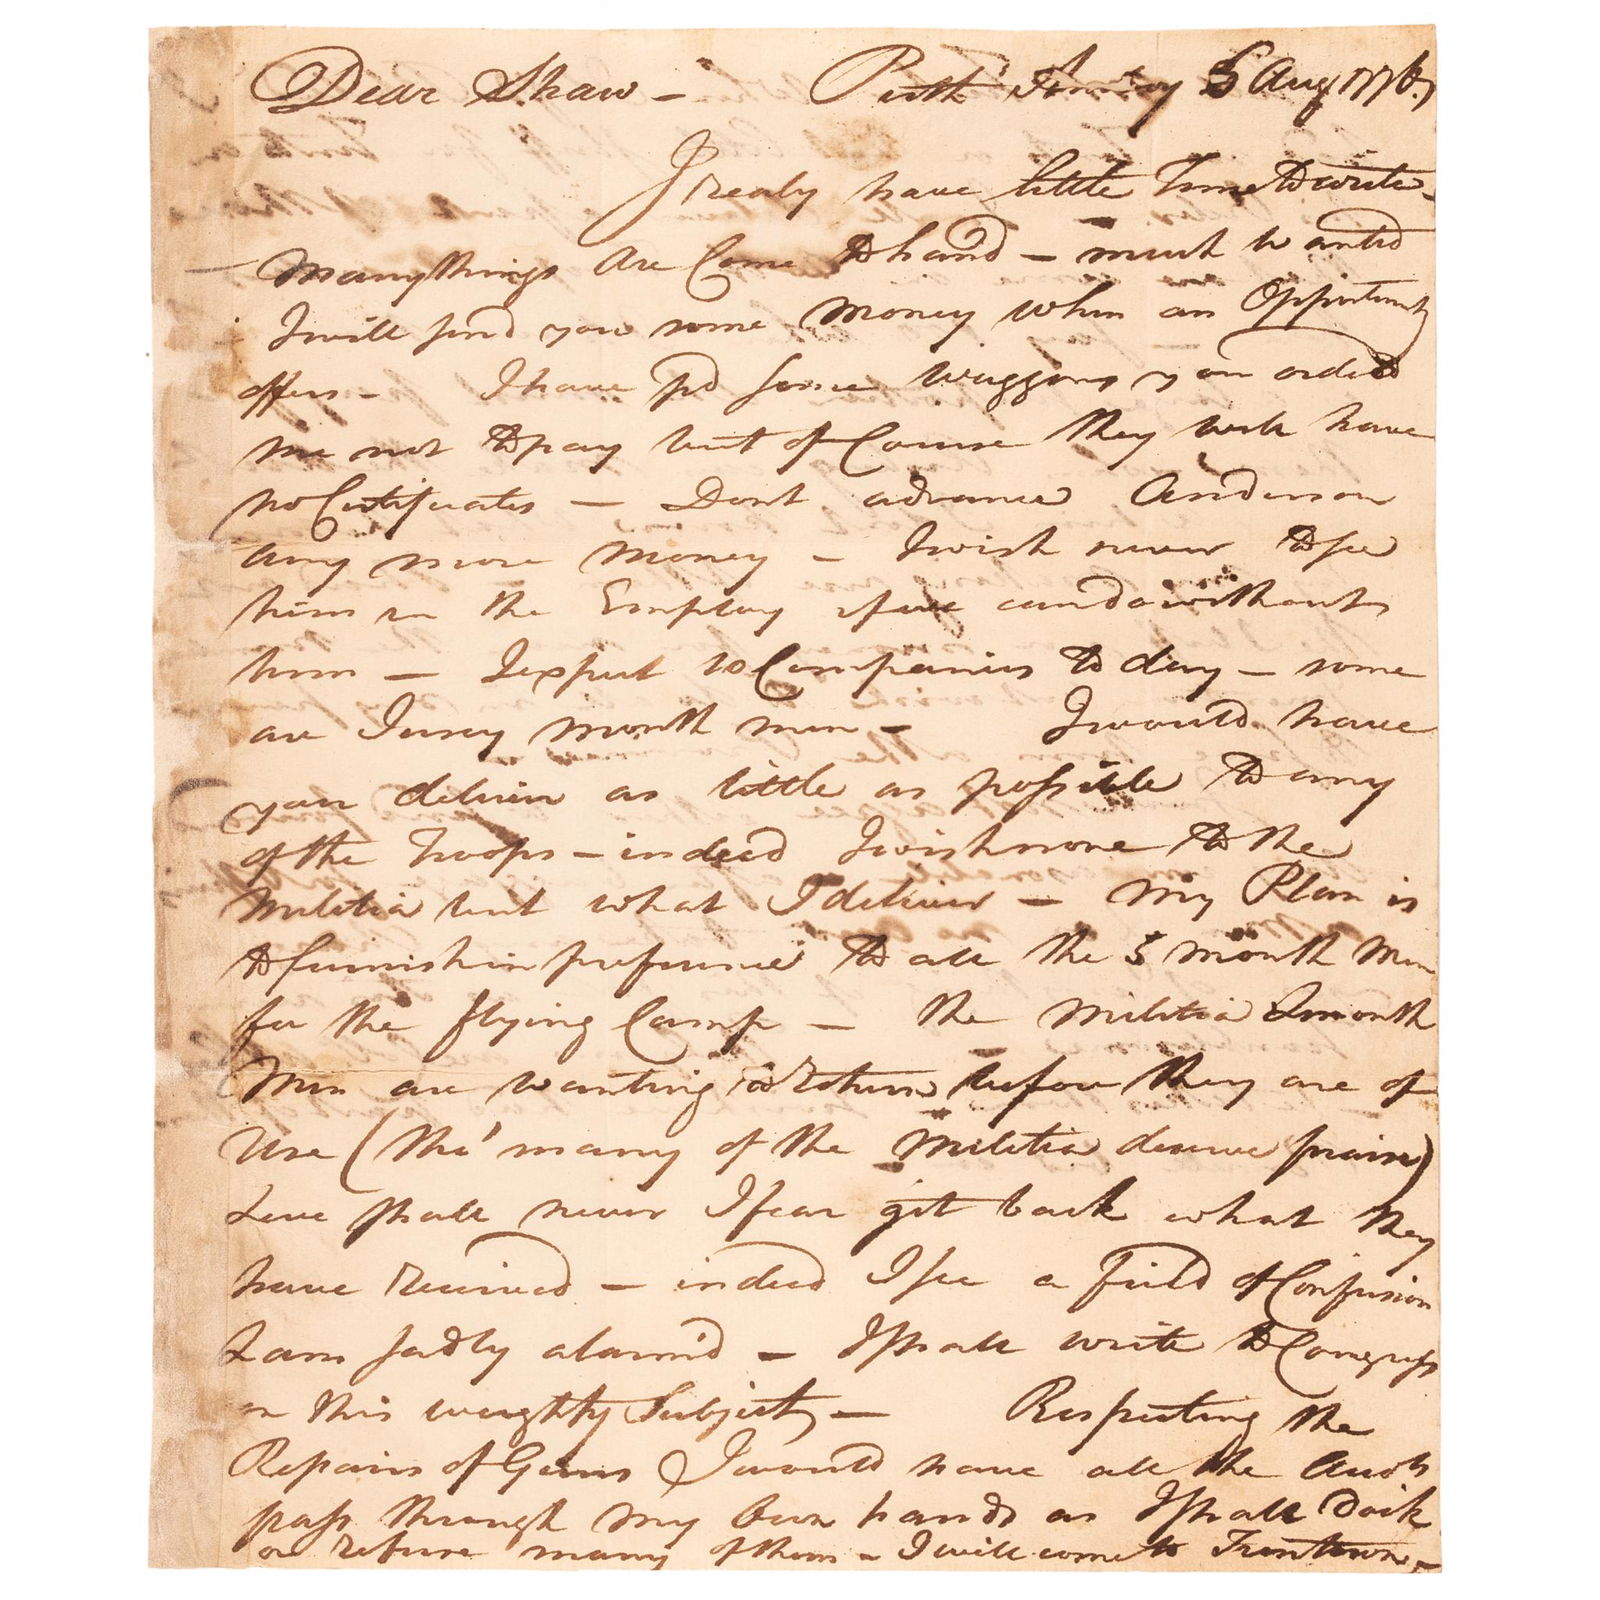 Dear Shaw - Perth Amboy 5 Aug 1776
I realy have little Time to write -
Many things are Come to hand - much wanted
I will send you some money when an Opportunity
offers - I have pd some waggons you orderd
me not to pay but of Course they will have
no Certificates - Dont advance Anderson
any more money - I wish never to see
him in the Employ if we can do without
him - I expect 10 Companies to day - some
are Jersey month men - I would have
you deliver as little as possible to any
of the Troops - indeed I wish none to the
Militia but what I deliver - My Plan is
to furnish in preference to all the 5 month Men
for the flying Camp - the Militia month
Men are wanting to return before they are of
Use (tho' many of the Militia deserve praise)
& we shall never I fear git back what they
have received - indeed I see a Field of Confusion
& am sadly alarm'd - I shall write to Congress
on this weighty Subject - Respecting the
Repairs of Guns I would have all the Accts
pass through my own hands as I shall dock
or refuse many of them - I will come to Trentown -